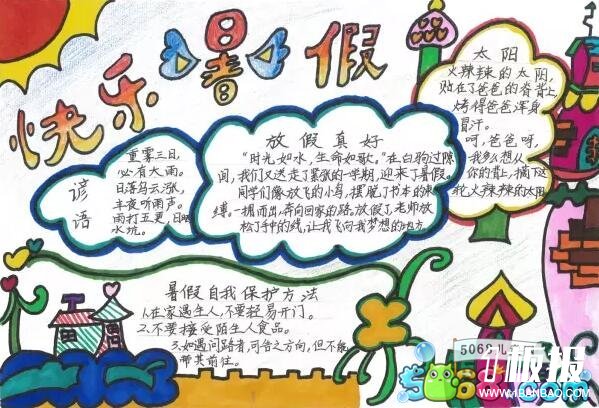 快乐暑假
谚语
重雾三日，
必有大雨。
日落乌云涨，
半夜听雨声。
雨打五更，日晒
水坑。
放假真好
"时光如水，生命如歌。"在白驹过隙
间，我们又送走了紧张的一学期，迎来了暑假。
同学们像放飞的小鸟，摆脱了书本的束
缚。一拥而出，奔向回家的路。放假了，老师放
松了手中的线，让我飞向我梦想的地方
太阳
火辣辣的太阳，
贴在了爸爸的脊背上
烤得爸爸浑身
冒汗。
呵，爸爸呀，
我多么想从
你的背上，摘下这
轮火辣辣的太阳
暑假自我保护方法
1.在家遇生人，不要轻易开门。
2.不要接受陌生人食品。
3.如遇问路者，可告之方向，但不能
带其前往。
5068儿
板报
www.1BANBAO.com